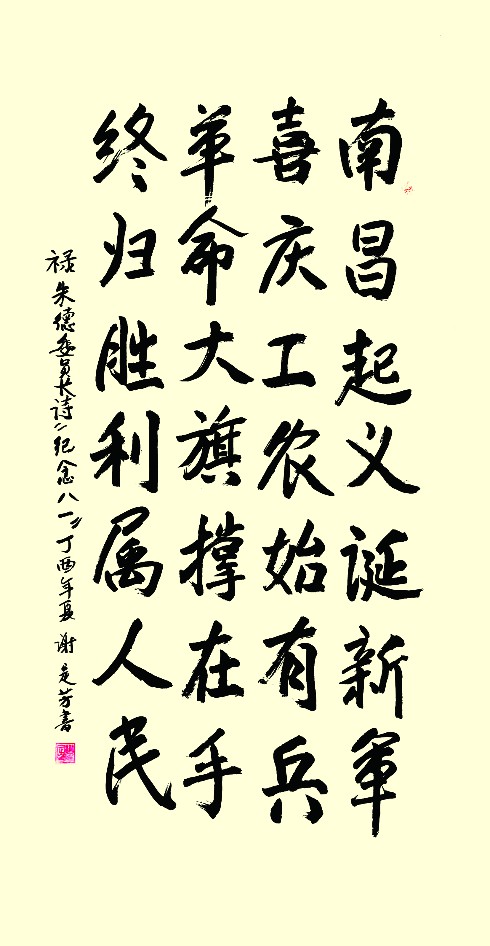 南昌起义诞新军
喜庆工农始有兵
革命大旗撑在手
终归胜利属人民
禄朱德委员长诗《纪念八一》丁酉年夏 谢定芳书